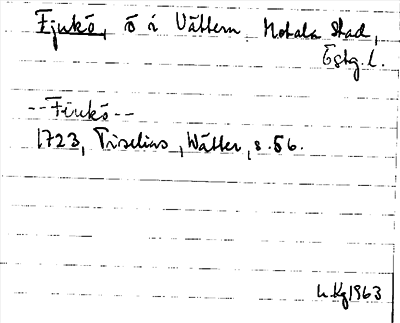 Fjukö, ö i Vättern Motala Stad,
Östg. l.
--Fiukö--
1723, Tiselius, Wätter, s. 56.
1963